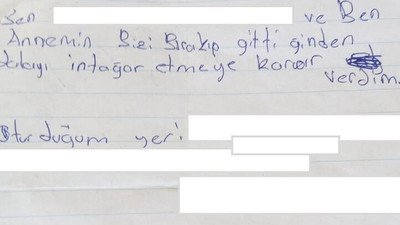 Ben ve Ben
Annemin Bizi Bırakıp gitti ğinden
Dolayı intağar etmeye karar
verdim.
Otur duğum yer: